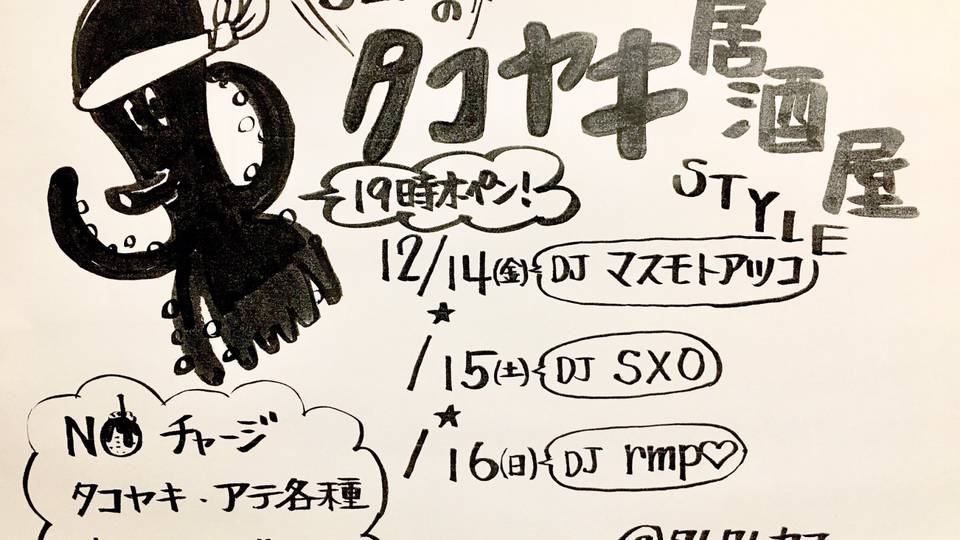 の
タコヤキ居酒屋
STYLE
19時オペン!
12/14(金) DJ マスモトアツコ
/15(土) DJ SXO
/16(日) DJ rmp♡
NO チャージ
タコヤキ・アテ各種